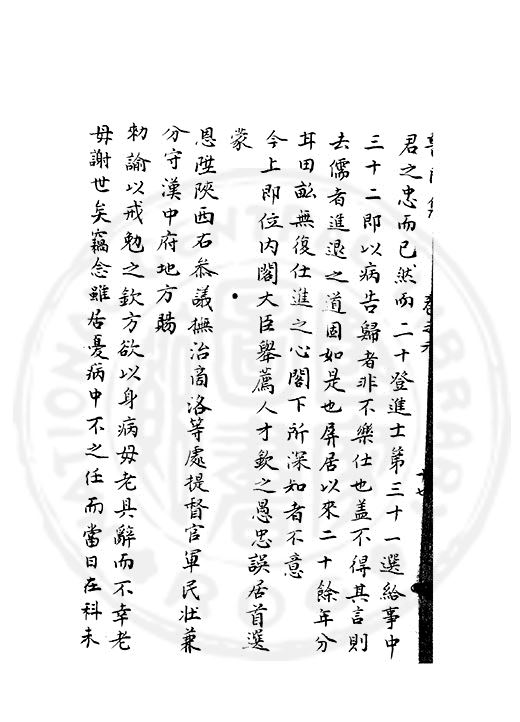 君之忠而已然而二十登進士第三十一選給事中
三十二即以病告歸者非不樂仕也盖不得其言則
去儒者進退之道固如是也屏居以來二十餘年分
耳田畝無復仕進之心閣下所深知者不意
今上即位内閣大臣舉薦人才欽之愚忠誤居首選
蒙
恩陞陝西右叅議撫治商洛等處提督官軍民壯兼
分守漢中府地方賜
勑諭以戒勉之欽方欲以身病毋老具辭而不幸老
毋謝世矣竊念雖居憂病中不之任而當日在科未